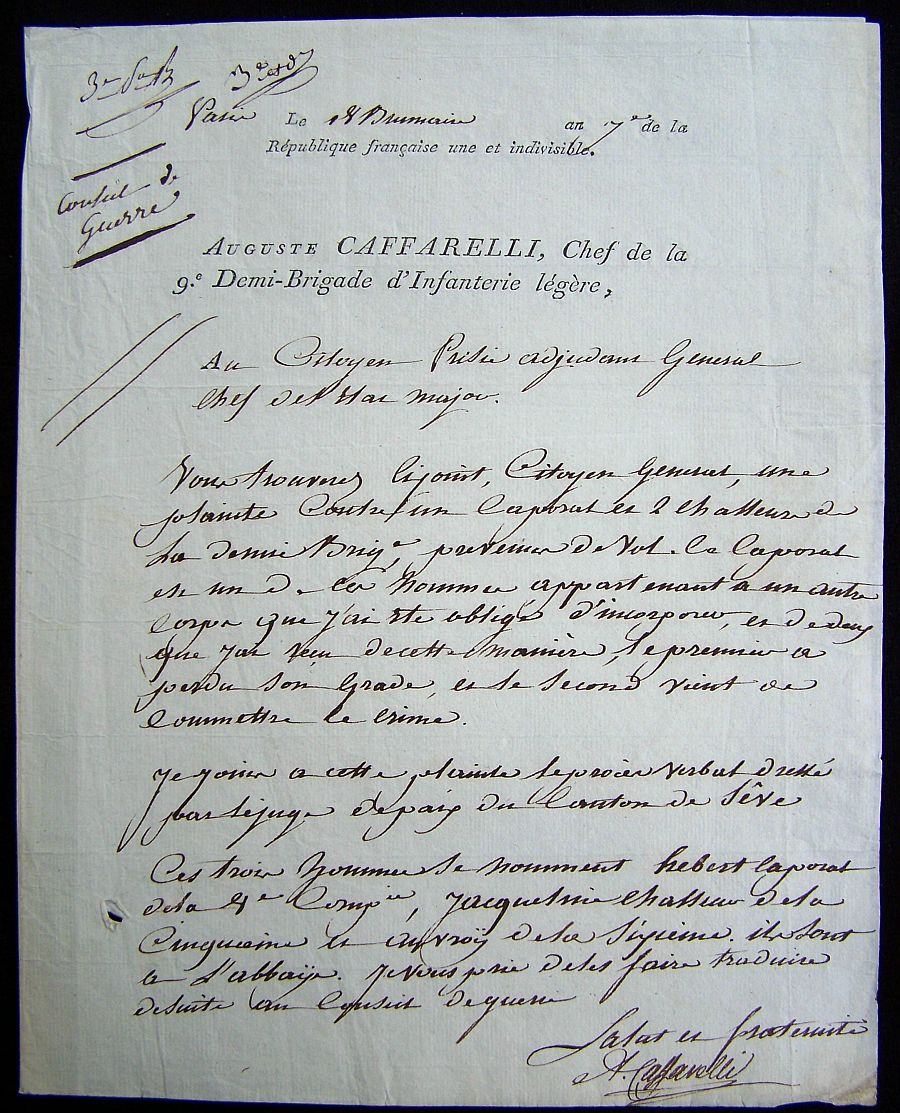 Paris Le 18 Brumaire an 7e de la
République française une et indivisible.
Conseil de
Guerre
AUGUSTE CAFFARELLI, Chef de la
9.e Demi-Brigade d'Infanterie légère,
Au Citoyen adjudant General
Chef de l'Etat major.
Vous trouverez cijoint, Citoyen General, une
plainte Contre un Caporal et 2 chasseurs de
La demie Brig.e, prevenus de Vol. le Caporal
est un de ces hommes appartenant a un autre
Corps que j'ai été obligé d'incorporer, et de deux
que j'ai reçu de cette manière, le premier a
perdu son Grade, et le second vient de
Commettre ce crime.
Je joins a cette plainte le procès verbal dressé
par le juge de paix du Canton de Sêve
Ces trois hommes se nomment hebert Caporal
de la Comp.ie, Jacqueline chasseur de la
Cinquieme et de la Sixieme. ils sont
a L'abbaÿe. Je vous prie de les faire traduire
de suite au Conseil de guerre
Salut et fraternité
A. Caffarelli